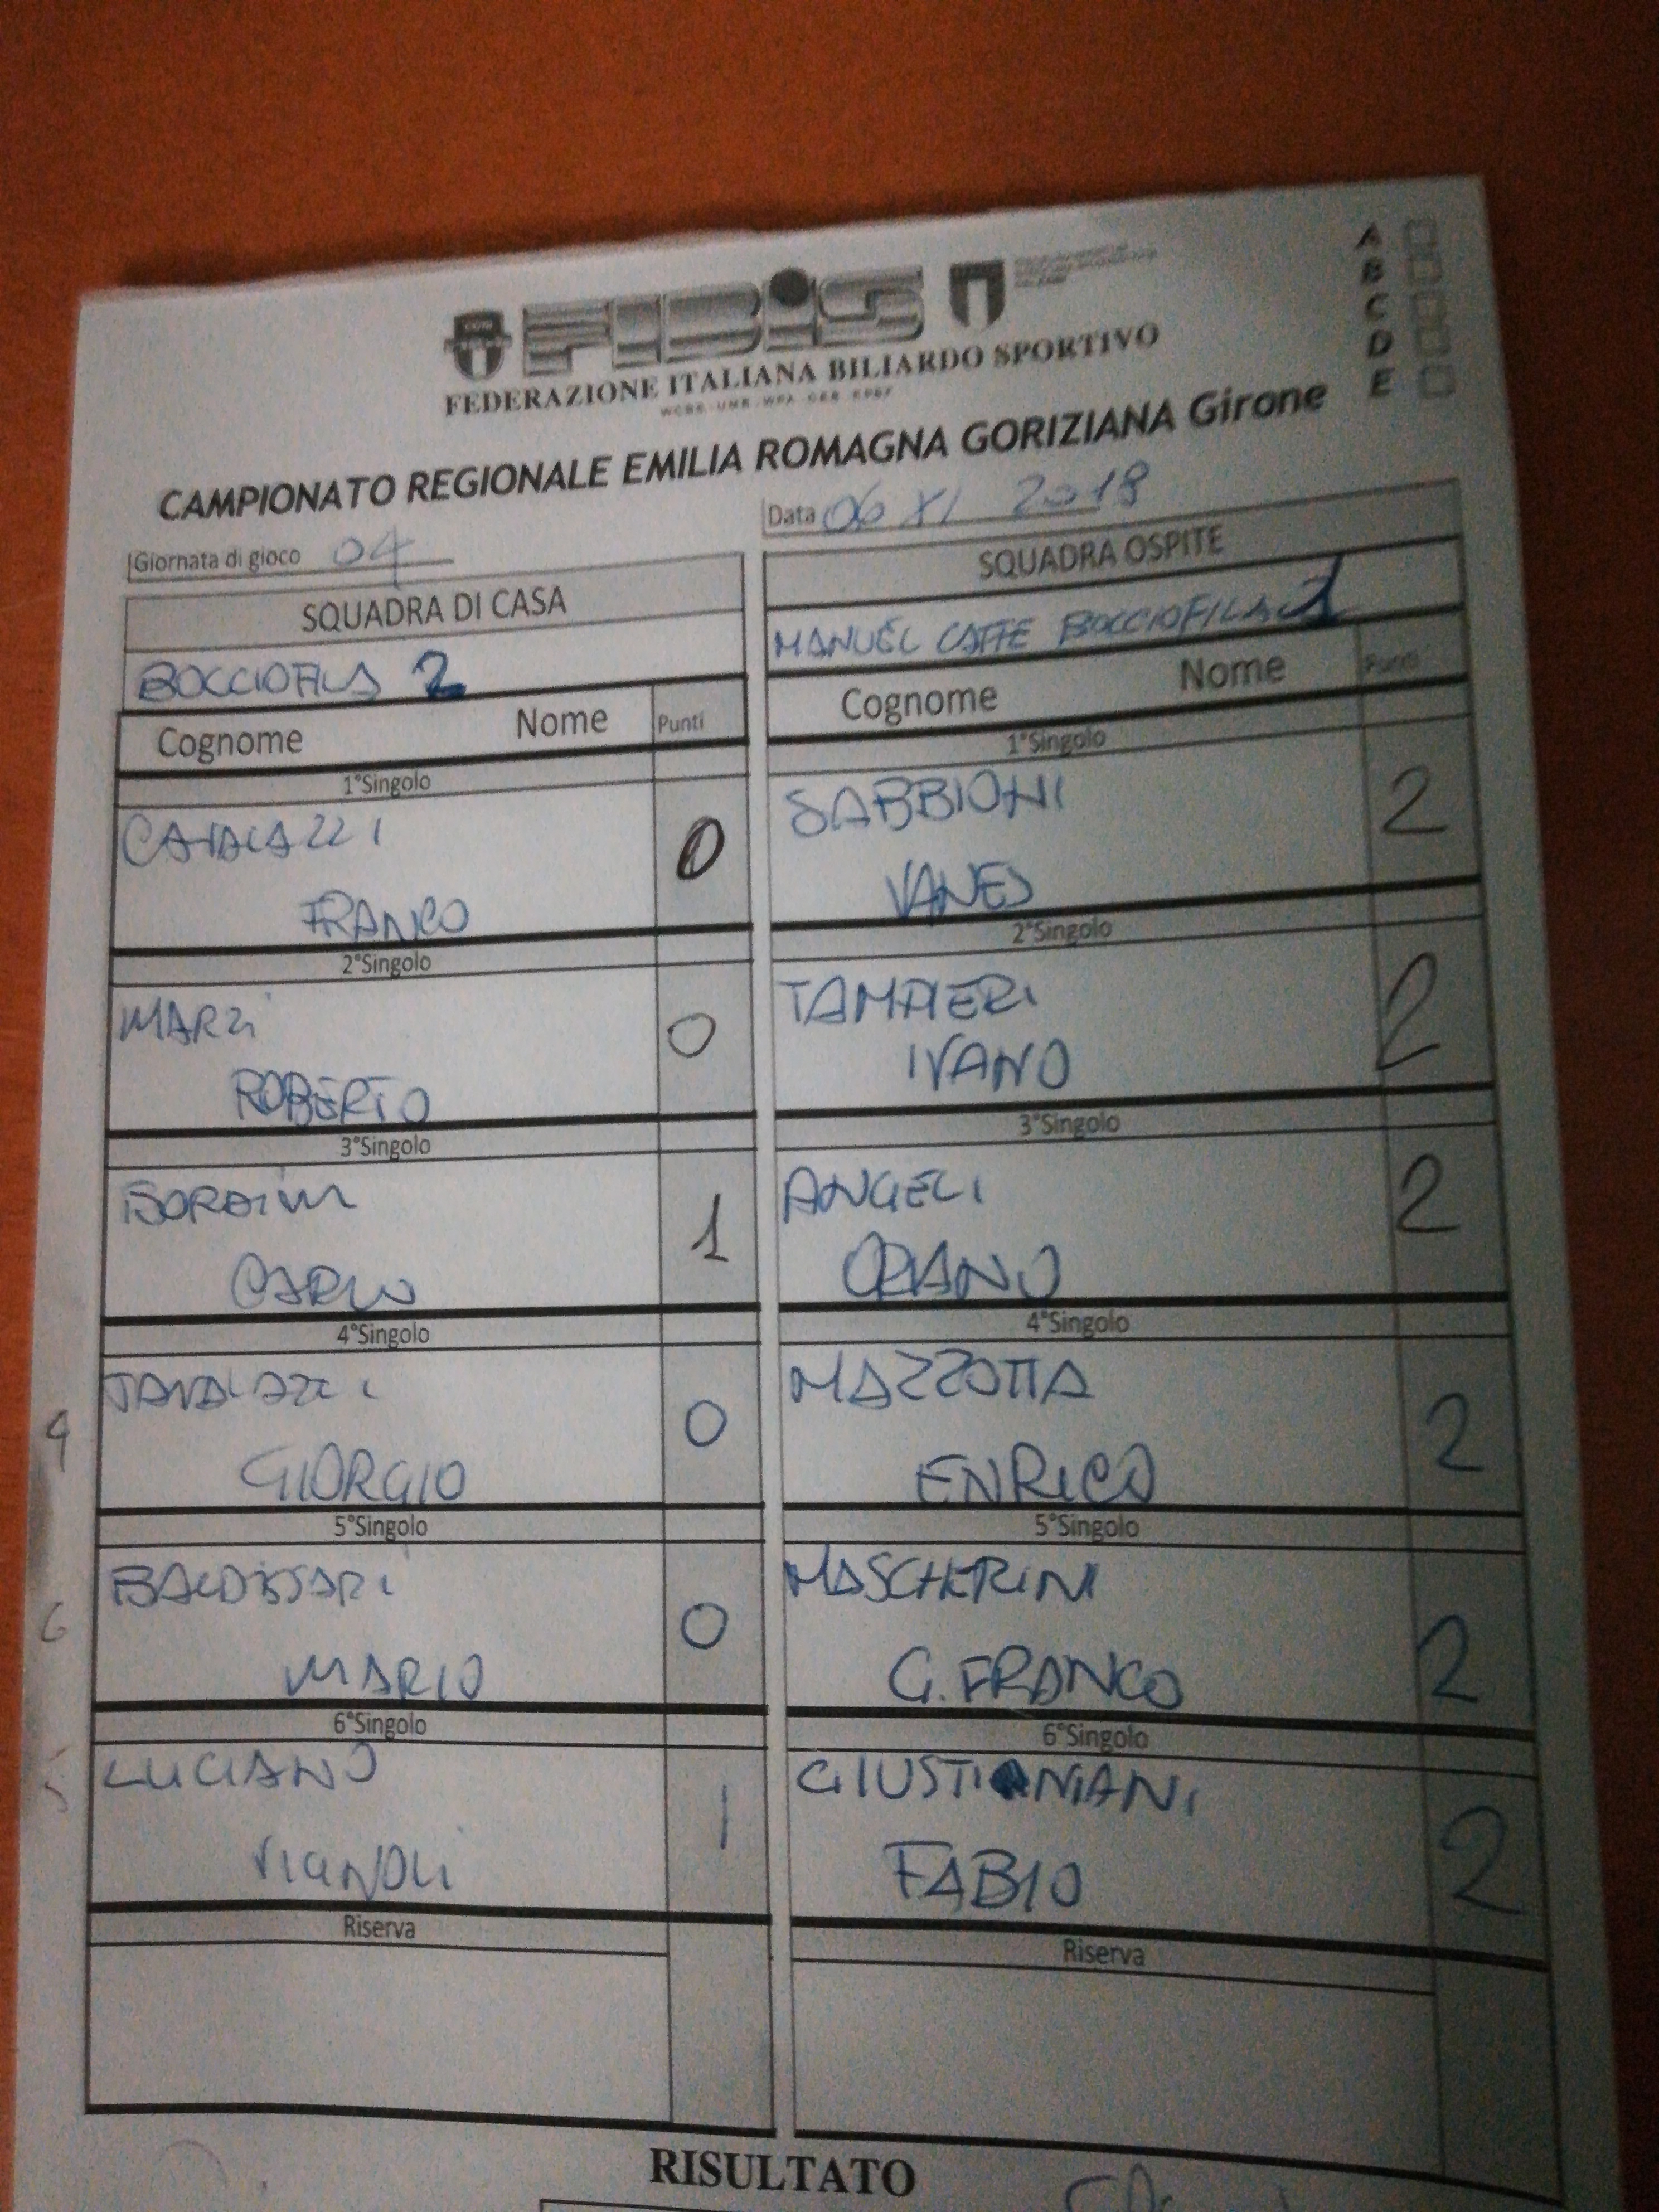 FIBiS
FEDERAZIONE ITALIANA BILIARDO SPORTIVO
A
B
C
D
E
CAMPIONATO REGIONALE EMILIA ROMAGNA GORIZIANA Girone
Giornata di gioco 04
Data 06 XI 2018
SQUADRA DI CASA
BOCCIOFILA 2
Cognome Nome Punti
1°Singolo
CAVALAZZI
FRANCO 0
2°Singolo
MARZI
ROBERTO 0
3°Singolo
CARLO 1
4°Singolo
GIORGIO 0
4
5°Singolo
BALDISSARI
MARIO 0
6
6°Singolo
LUCIANO
VIGNOLI 1
5
Riserva
SQUADRA OSPITE
MANUEL CAFFE BOCCIOFILA 1
Cognome Nome Punti
1°Singolo
SABBIONI
VANES 2
2°Singolo
TAMPIERI
IVANO 2
3°Singolo
ANGELI
ORIANO 2
4°Singolo
MAZZOTTA
ENRICO 2
5°Singolo
MASCHERINI
G. FRANCO 2
6°Singolo
GIUSTINIANI
FABIO 2
Riserva
RISULTATO